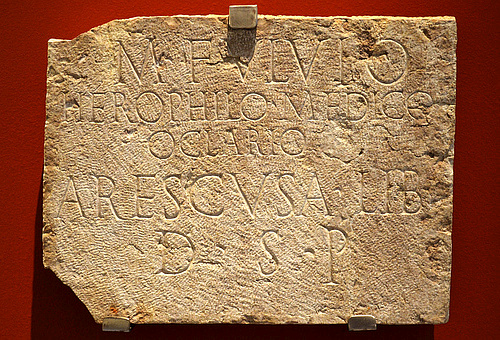 M · FVLVIO
HIEROPHILO · MEDICO
OCLARIO
ARESCVSA · LIB
D · S · P